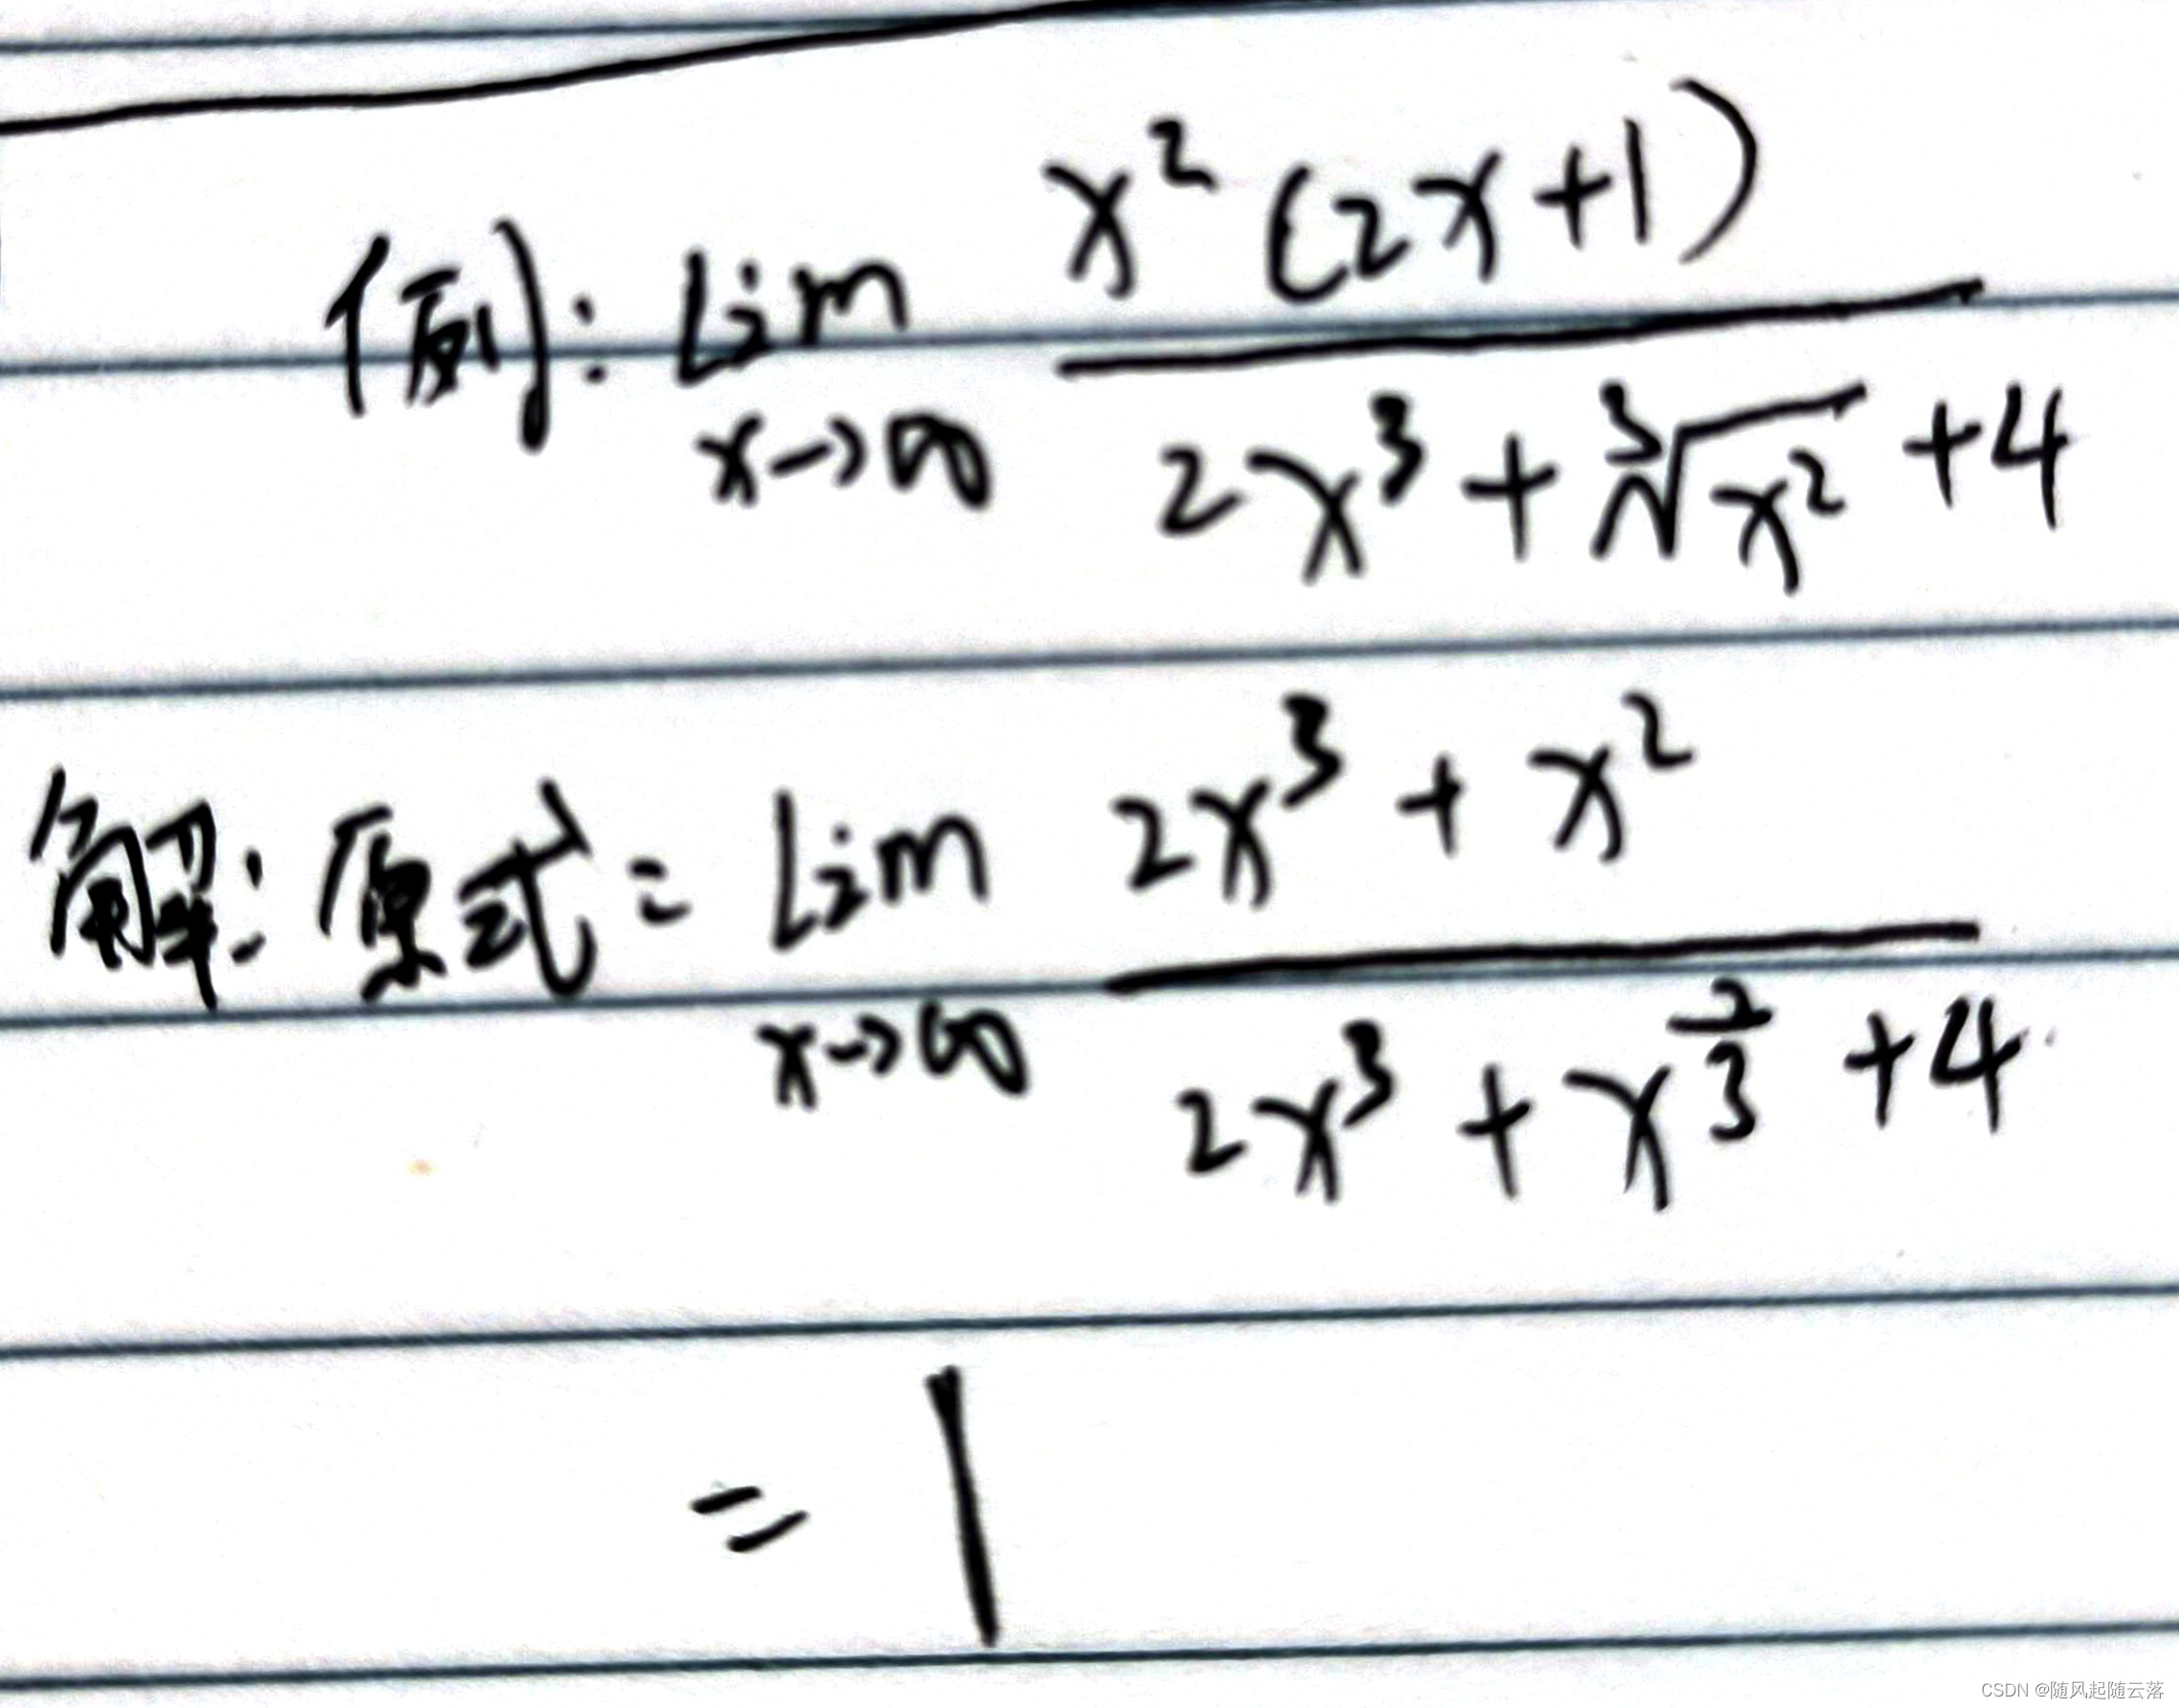 例: lim x→∞ x²(2x+1) / 2x³+∛x²+4
解: 原式= lim x→∞ 2x³+x² / 2x³+x^(2/3)+4
=1
CSDN @随风起随云落